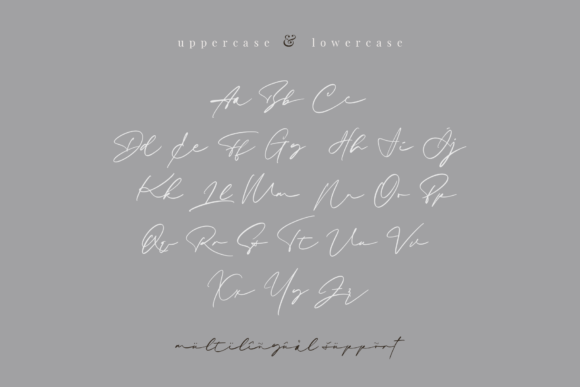 uppercase & lowercase
Aa Bb Cc
Dd Ee Ff Gg Hh Ii Jj
Kk Ll Mm Nn Oo Pp
Qq Rr Ss Tt Uu Vv
Xx Yy Zz
mültilingüâl süppört